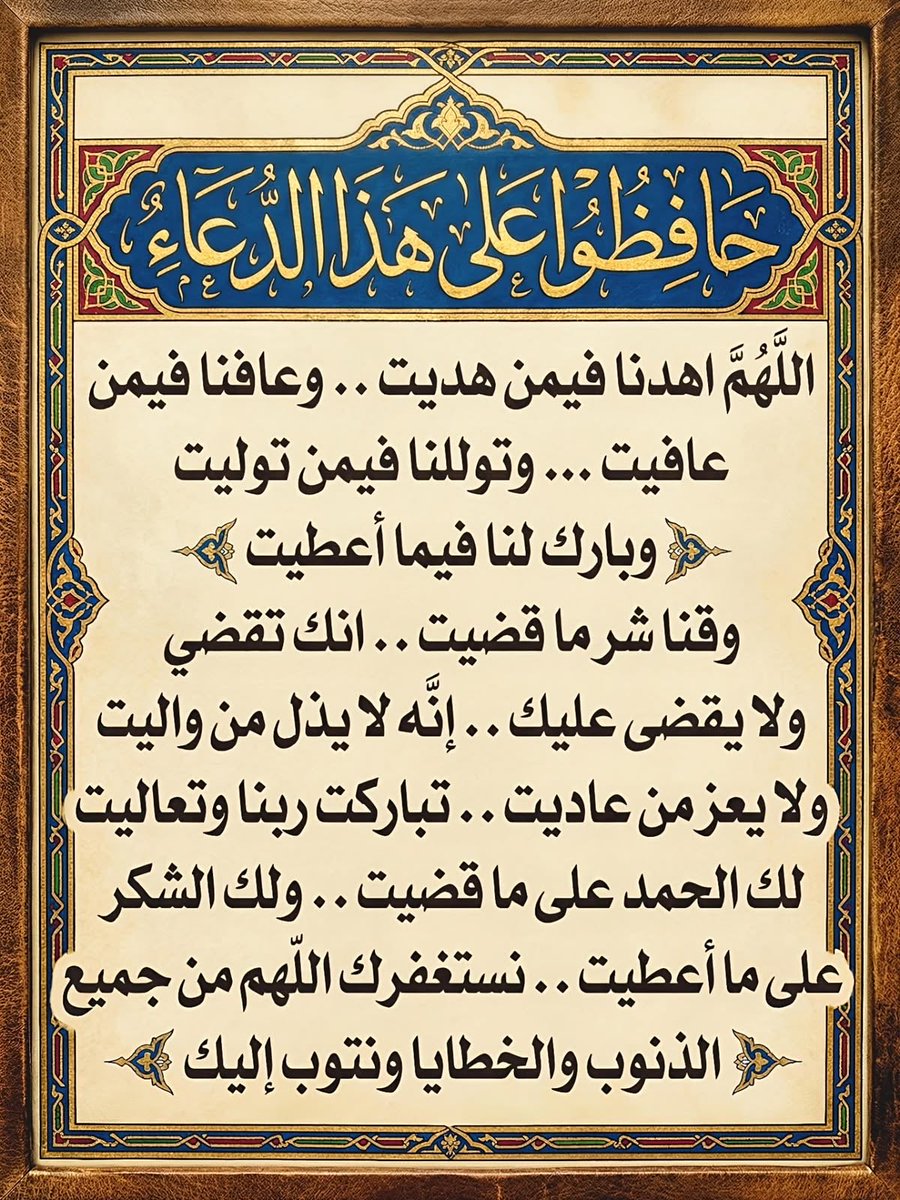 حَافِظُوْا عَلَى هَذَا الدُّعَاءُ
اللَّهُمَّ اهدنا فيمن هديت .. وعافنا فيمن
عافيت ... وتوللنا فيمن توليت
وبارك لنا فيما أعطيت
وقنا شر ما قضيت .. انك تقضي
ولا يقضى عليك .. إنَّه لا يذل من واليت
ولا يعز من عاديت .. تباركت ربنا وتعاليت
لك الحمد على ما قضيت .. ولك الشكر
على ما أعطيت .. نستغفرك اللّهم من جميع
الذنوب والخطايا ونتوب إليك